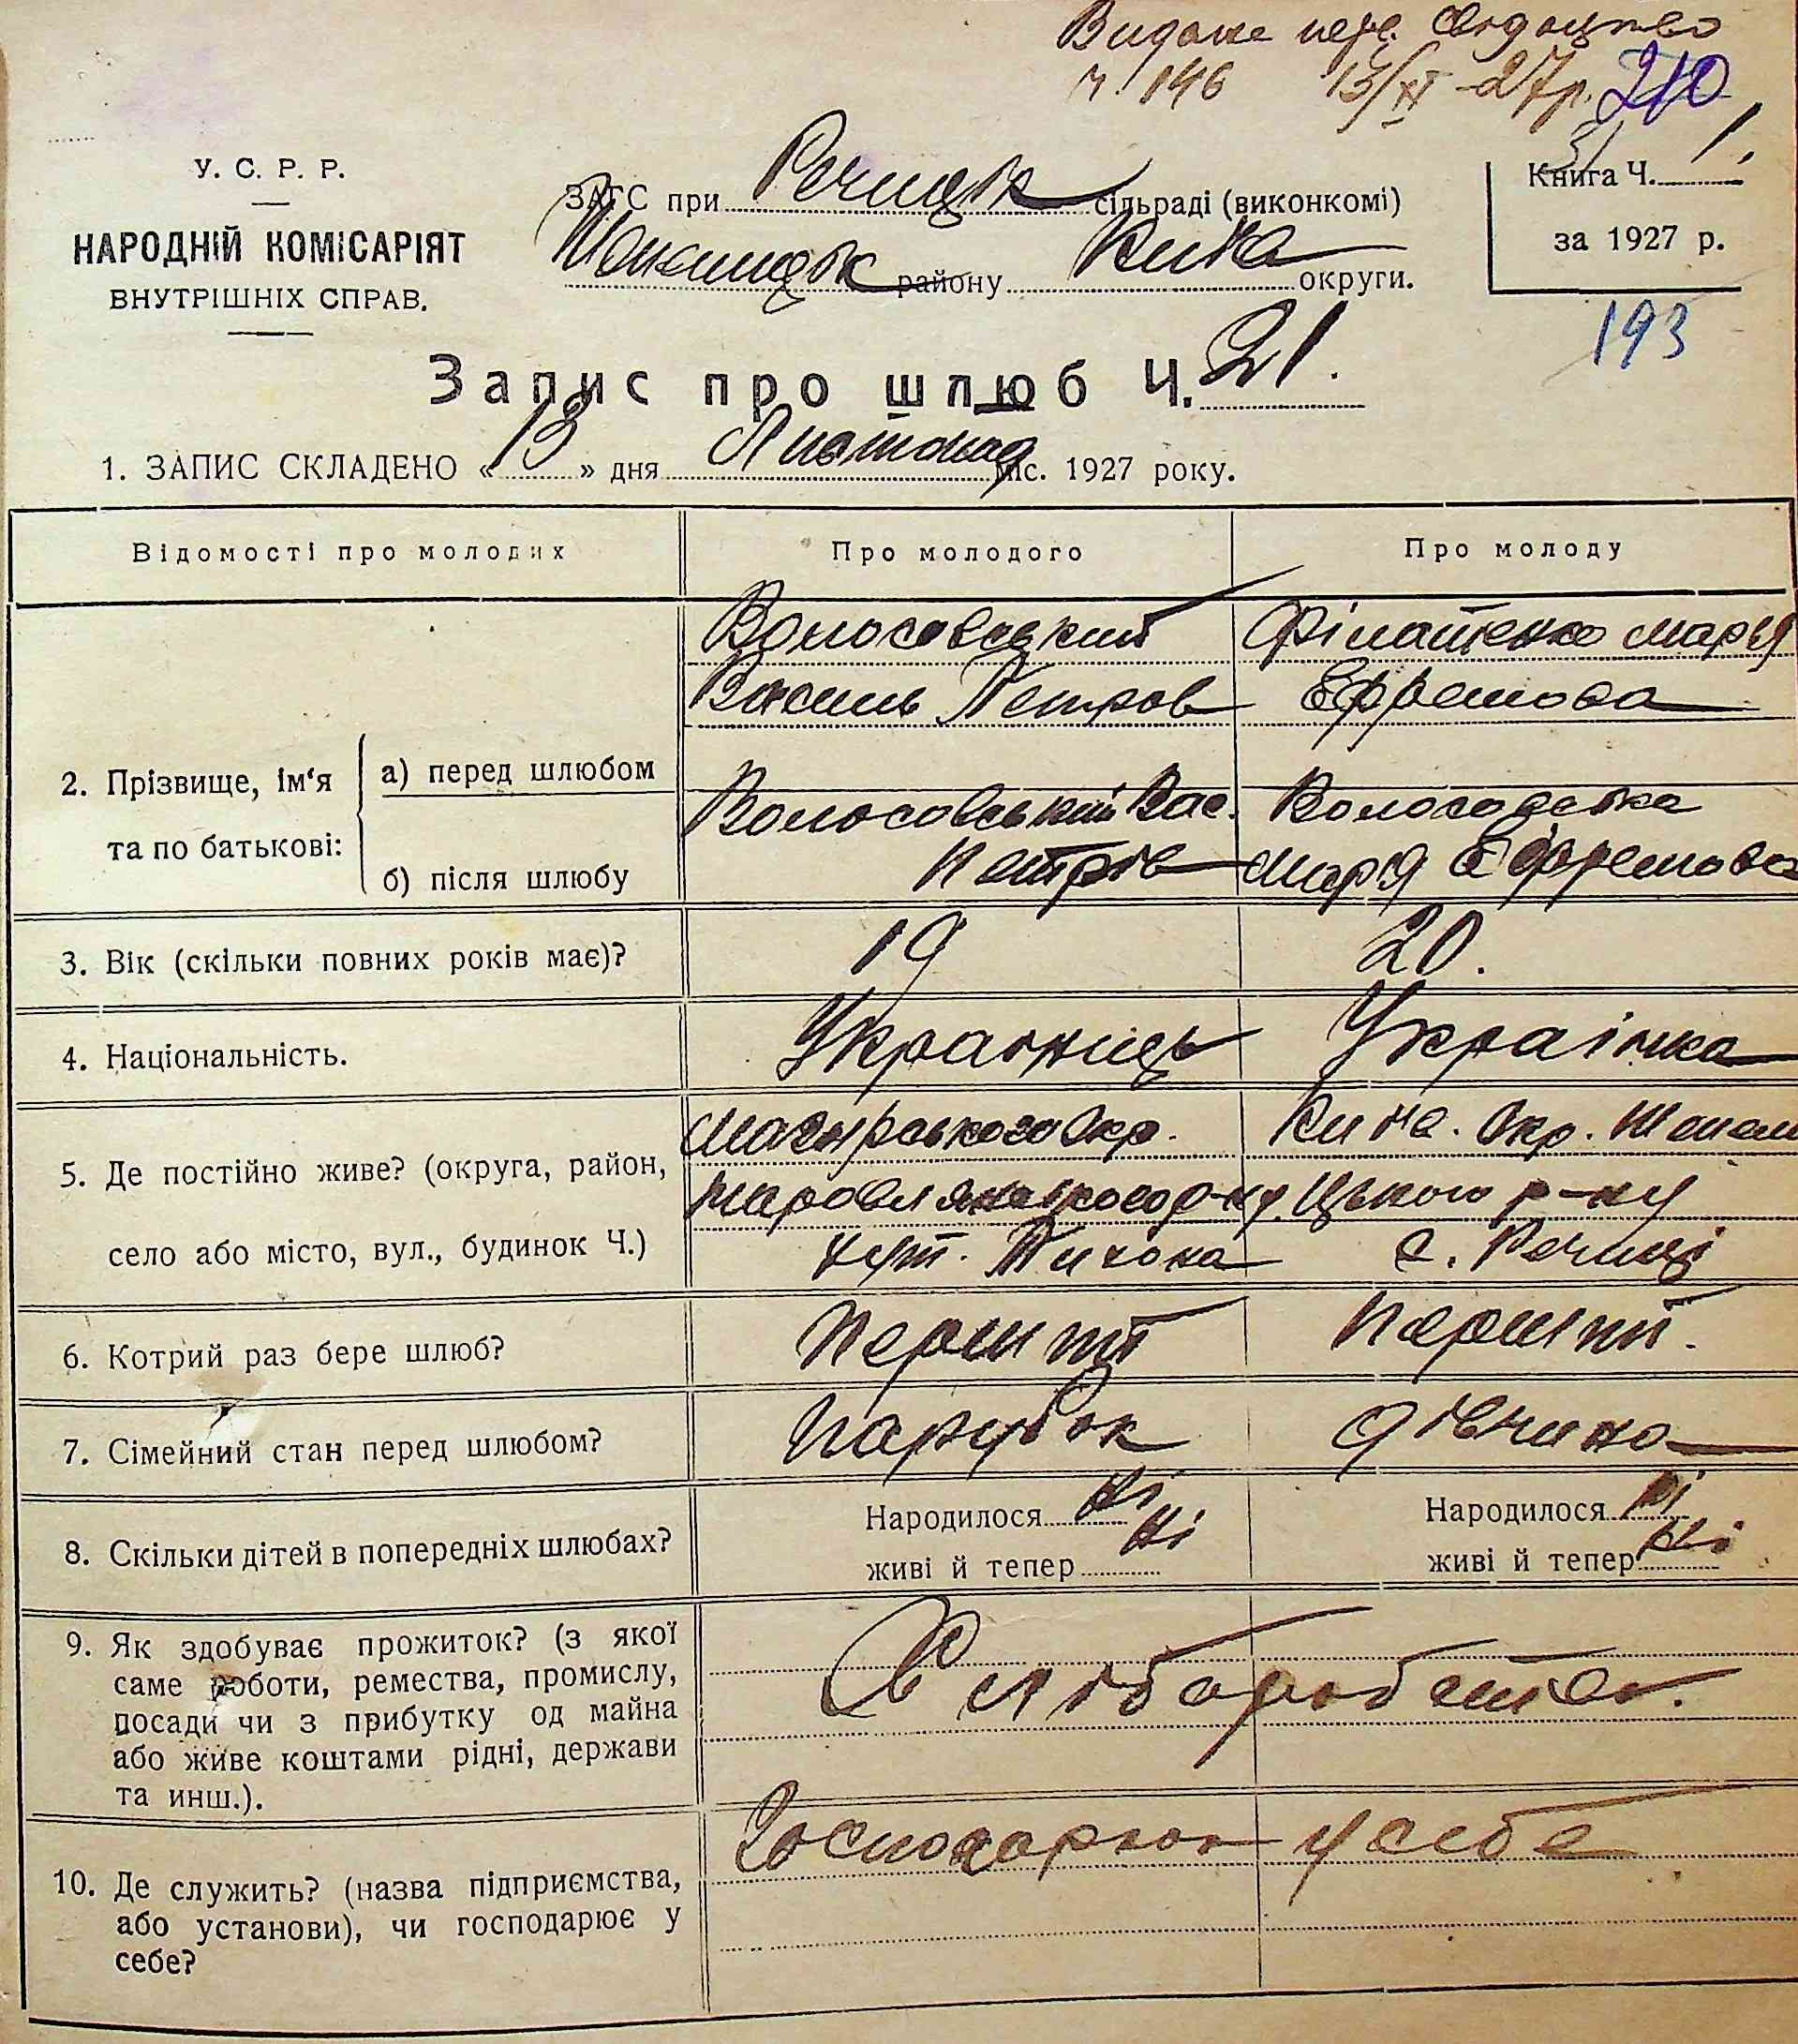 Видане перв. свідоцтво
ч. 146 13/XI -27р. 210
31
У. С. Р. Р.
НАРОДНІЙ КОМІСАРІЯТ
ВНУТРІШНІХ СПРАВ.
ЗАГС при Речицьк сільраді (виконкомі)
району Київа округи.
Книга Ч. 1.
за 1927 р.
193
Запис про шлюб Ч. 21.
1. ЗАПИС СКЛАДЕНО « 13 » дня Листопад міс. 1927 року.
Відомості про молодих Про молодого Про молоду
2. Прізвище, ім‘я та по батькові:
а) перед шлюбом
Волосовський
Василь Петров
Філатенко Мар'я
Ефремова
б) після шлюбу
Волосовський Вас.
Петрів
Волосовська
Мар'я Ефремова
3. Вік (скільки повних років має)? 19 20.
4. Національність. Українець Українка
5. Де постійно живе? (округа, район,
село або місто, вул., будинок Ч.)
Мозирського Окр.
хут. Тихона
Київа. Окр.
цького р-ну
с. Речиці
6. Котрий раз бере шлюб? Перший Перший.
7. Сімейний стан перед шлюбом? Парубок дівчина
8. Скільки дітей в попередніх шлюбах?
Народилося ні
живі й тепер ні
Народилося ні
живі й тепер ні
9. Як здобуває прожиток? (з якої
саме роботи, ремества, промислу,
посади чи з прибутку од майна
або живе коштами рідні, держави
та инш.).
10. Де служить? (назва підприємства,
або установи), чи господарює у
себе?
у себе